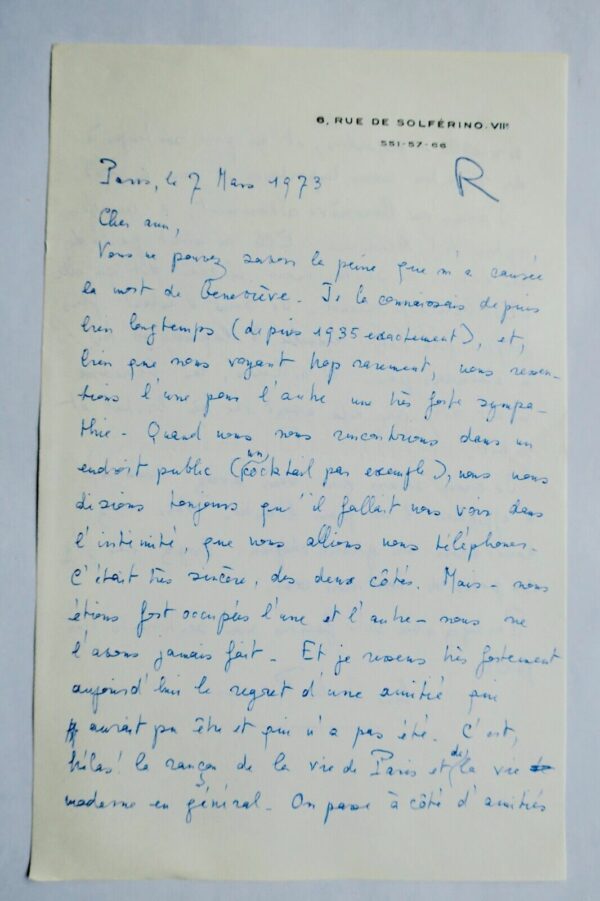 6, RUE DE SOLFÉRINO. VIIe
551-57-66
R
Paris, le 7 Mars 1973
Cher ami,
Vous ne pouvez savoir la peine que m'a causée
la mort de Geneviève. Je la connaissais depuis
bien longtemps (depuis 1935 exactement), et,
bien que nous voyant trop rarement, nous ressen-
tions l'une pour l'autre une très forte sympa-
thie. Quand nous nous rencontrions dans un
endroit public (un cocktail par exemple), nous nous
disions toujours qu'il fallait nous voir dans
l'intimité, que nous allions nous téléphoner.
C'était très sincère, des deux côtés. Mais - nous
étions fort occupées l'une et l'autre - nous ne
l'avons jamais fait. Et je ressens très fortement
aujourd'hui le regret d'une amitié qui
aurait pu être et qui n'a pas été. C'est,
hélas! la rançon de la vie de Paris et de la vie
moderne en général. On passe à côté d'amitiés